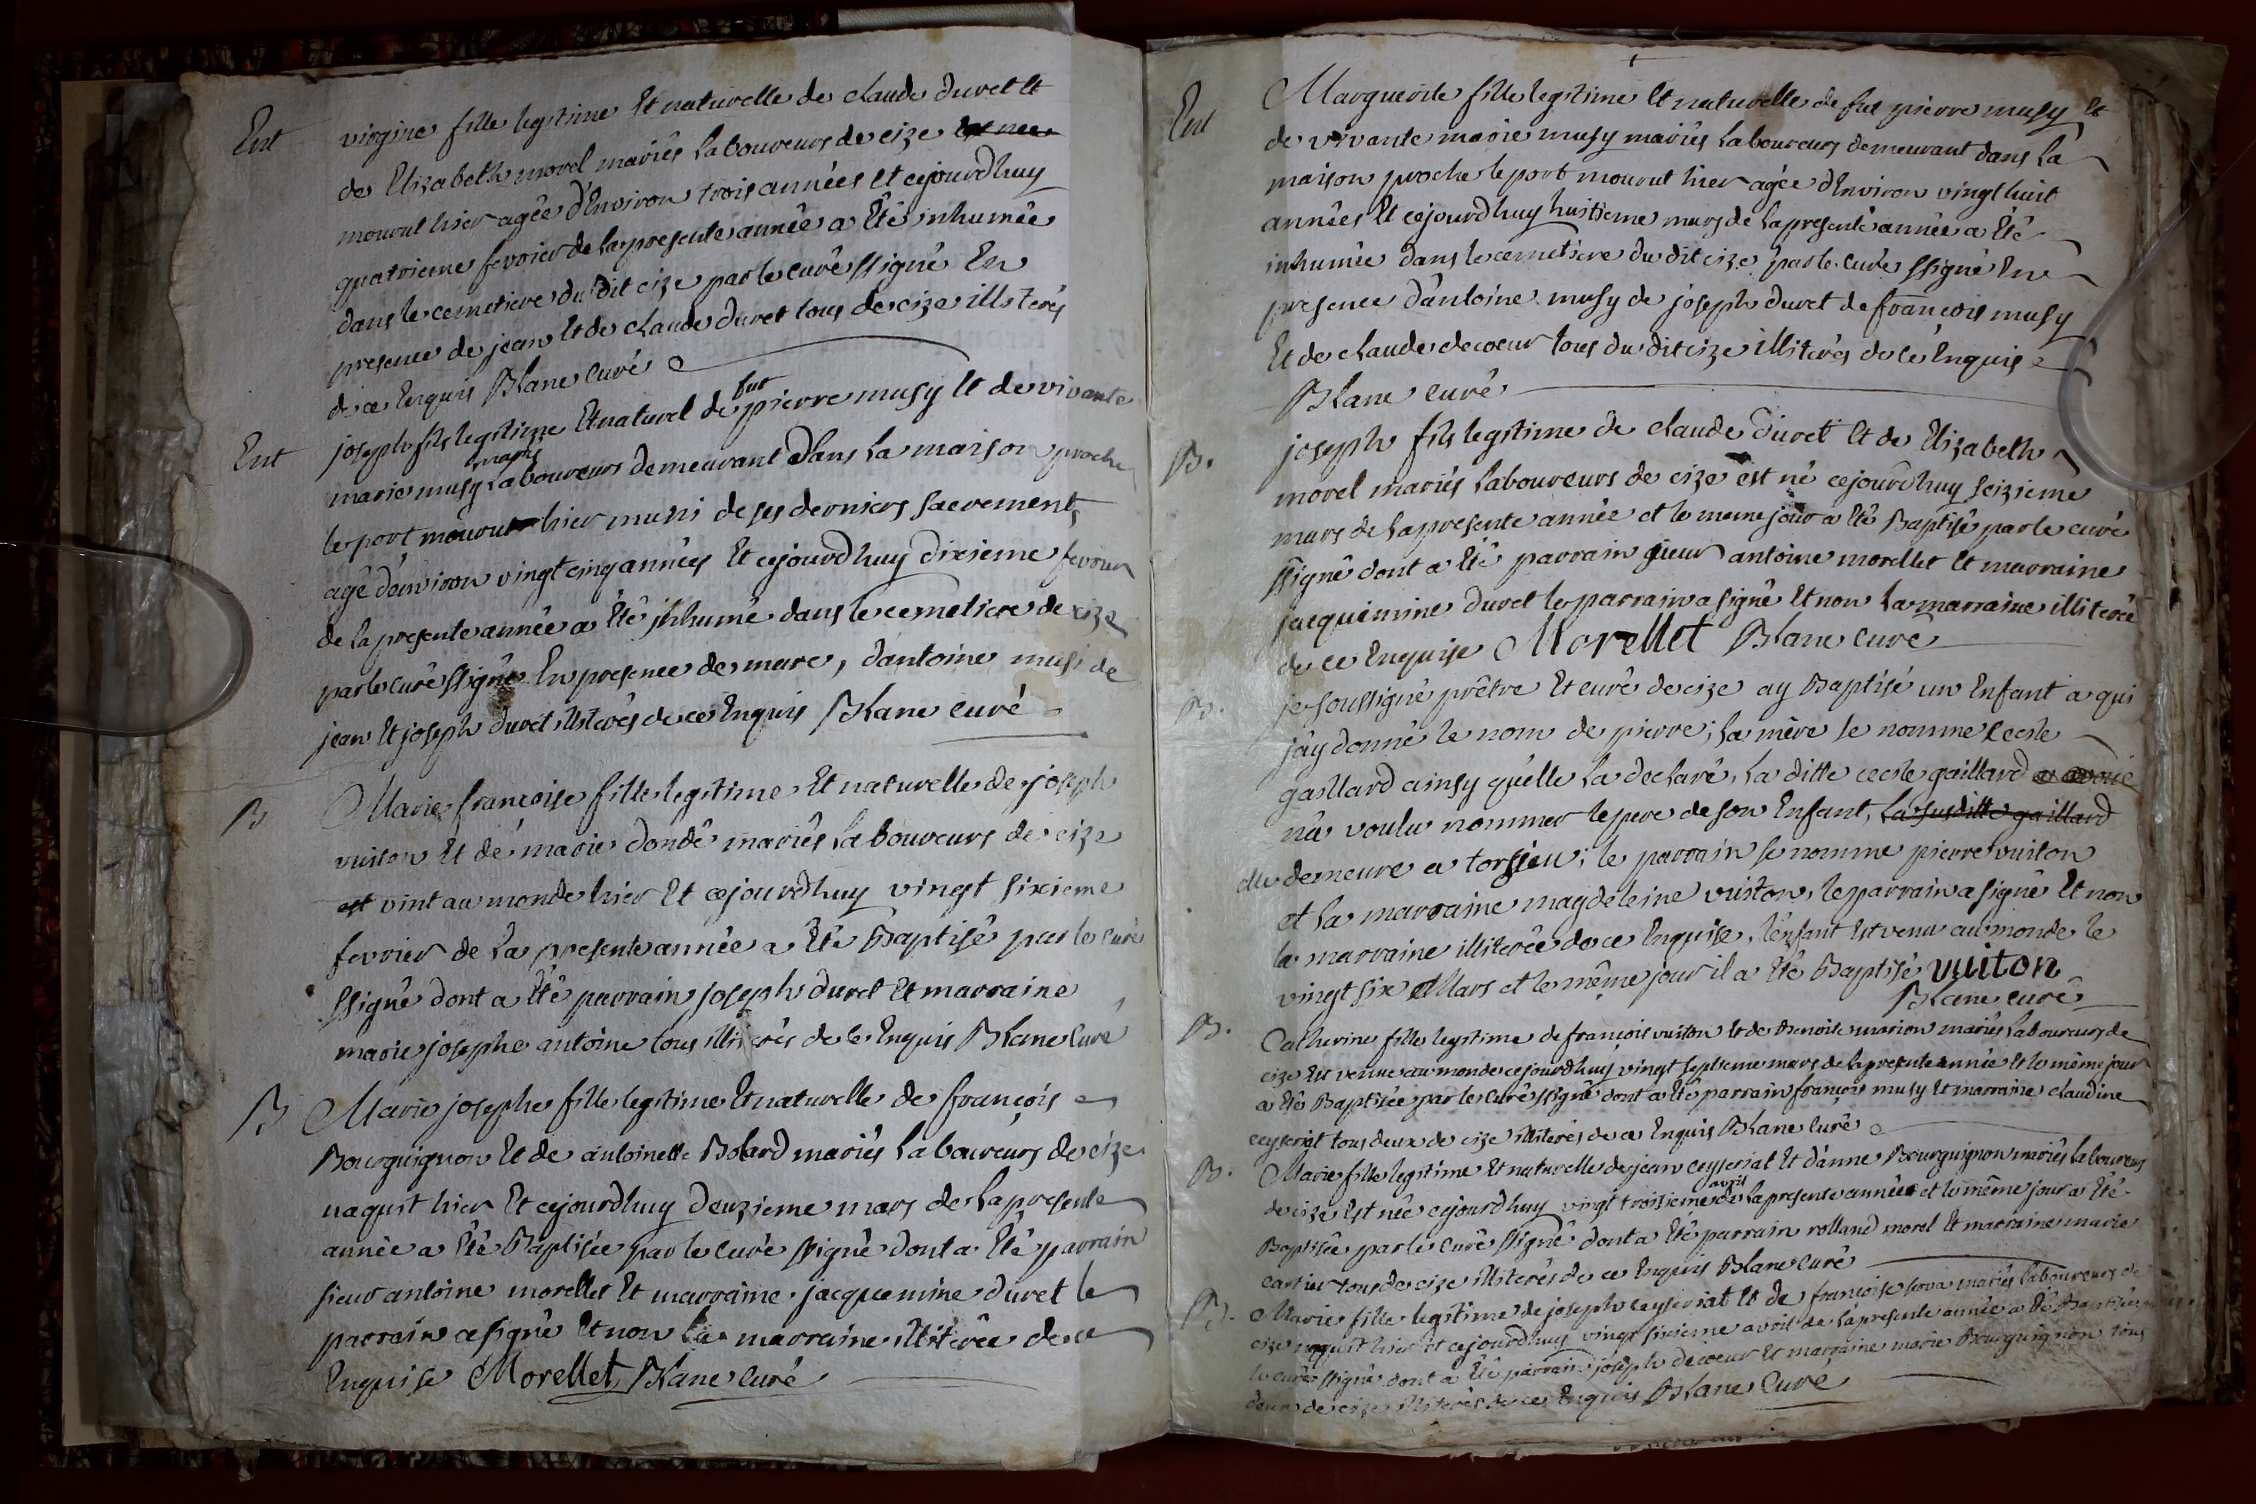 Ent
virgine fille legitime Et naturelle de claude duret Et
de Elizabeth morel mariés laboureurs de cize est née
mourut hier agée d'Environ trois années et cejourdhuy
quatrieme fevrier de la presente année a Eté inhumée
dans le cemetiere du dit cize par le curé ssigné En
presence de jean Et de claude duret tous de cize illiterés
de ce Enquis Blanc curé
Ent
joseph fils legitime Et naturel de feu pierre musy Et de vivante
marie musy mariés laboureurs demeurant dans la maison proche
le port mourut hier muni de ses derniers sacrements
agé d'environ vingt cinq années Et cejourdhuy dixieme fevrier
de la presente année a Eté jnhumé dans le cemetiere de cize
par le curé ssigné En presence de marc, d'antoine musi de
jean Et joseph duret illiterés de ce Enquis Blanc curé
B
Marie françoise fille legitime Et naturelle de joseph
vuiton Et de marie dondé mariés laboureurs de cize
est vint au monde hier Et cejourdhuy vingt sixieme
fevrier de la presente année a Eté Baptisé par le curé
ssigné dont a Eté parrain joseph duret Et marraine
marie josephe antoine tous illiterés de ce Enquis Blanc curé
B
Marie josephe fille legitime Et naturelle de françois
Bourguignon Et de antoinette Bolard mariés laboureurs de cize
naquit hier Et cejourdhuy deuzieme mars de la presente
année a Eté Baptisée par le curé ssigné dont a Eté parrain
sieur antoine morellet Et marraine jacquemine duret le
parrain a signé Et non la marraine illiterée de ce
Enquise Morellet Blanc curé
Ent
Marguerite fille legitime Et naturelle de feu pierre musy Et
de vivante marie musy mariés laboureurs demeurant dans la
maison proche le port mourut hier agée d'Environ vingt huit
années Et cejourdhuy huitieme mars de la presente année a Eté
inhumée dans le cemetiere du dit cize par le curé ssigné En
presence d'antoine musy de joseph duret de françois musy
Et de claude decoeur tous du dit cize illiterés de ce Enquis
Blanc curé
B.
joseph fils legitime de claude duret Et de Elizabeth
morel mariés laboureurs de cize est né cejourdhuy seizieme
mars de la presente année et le meme jour a Eté Baptisé par le curé
ssigné dont a Eté parrain sieur antoine morellet Et marraine
jacquemine duret le parrain a signé Et non la marraine illiterée
de ce Enquise Morellet Blanc curé
B.
je soussigné prêtre Et curé de cize ay Baptisé un Enfant a qui
j'ay donné le nom de pierre; la mère se nomme cecile
gaillard ainsy quelle la declaré, la ditte cecile gaillard a avoué
n'a voulu nommer le pere de son Enfant, la susditte gaillard
elle demeure a torsieu; le parrain se nomme pierre vuiton
et la marraine magdeleine vuiton, le parrain a signé Et non
la marraine illiterée de ce Enquise, l'enfant Est venu au monde le
vingt six Mars et le même jour il a Eté Baptisé vuiton
Blanc curé
B.
Catherine fille legitime de françois vuiton Et de Benoite marion mariés laboureurs de
cize Est venue au monde cejourdhuy vingt septieme mars de la presente année Et le même jour
a Eté Baptisée par le curé ssigné dont a Eté parrain françois musy Et marraine claudine
ceyseriat tous deux de cize illiterés de ce Enquis Blanc curé
B.
Marie fille legitime Et naturelle de jean ceyseriat Et d'anne Bourguignon mariés laboureurs
de cize Est née cejourdhuy vingt troisieme avril de la presente année et le même jour a Eté
Baptisée par le curé ssigné dont a Eté parrain rolland morel Et marraine marie
cartier tous de cize illiterés de ce Enquis Blanc curé
B.
Marie fille legitime de joseph ceyseriat Et de françoise mariés laboureurs de
cize naquit hier Et cejourdhuy vingt sixieme avril de la presente année a Eté Baptisée par
le curé ssigné dont a Eté parrain joseph decoeur Et marraine marie Bourguignon tous
deux de cize illiterés de ce Enquis Blanc Curé